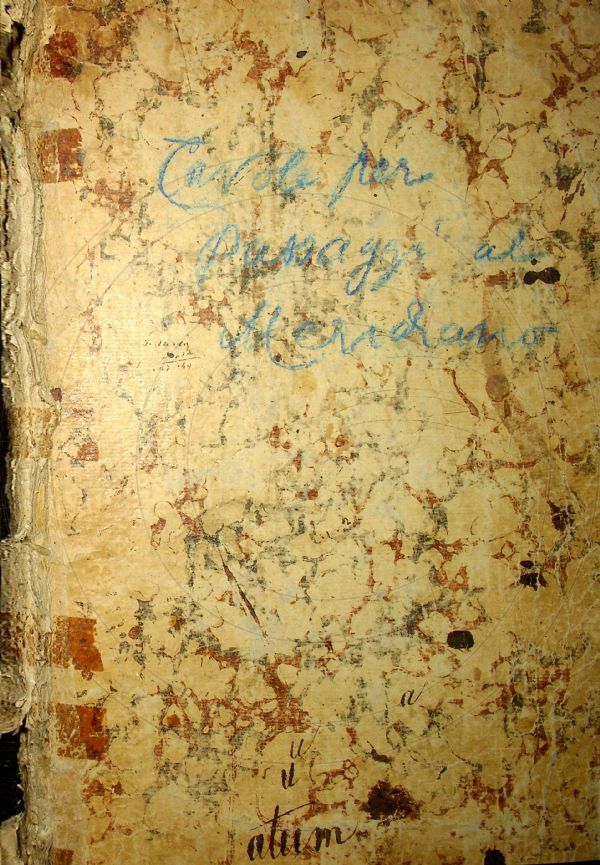 Tavole per
Passaggi al
Meridiano
a
u
u
atum